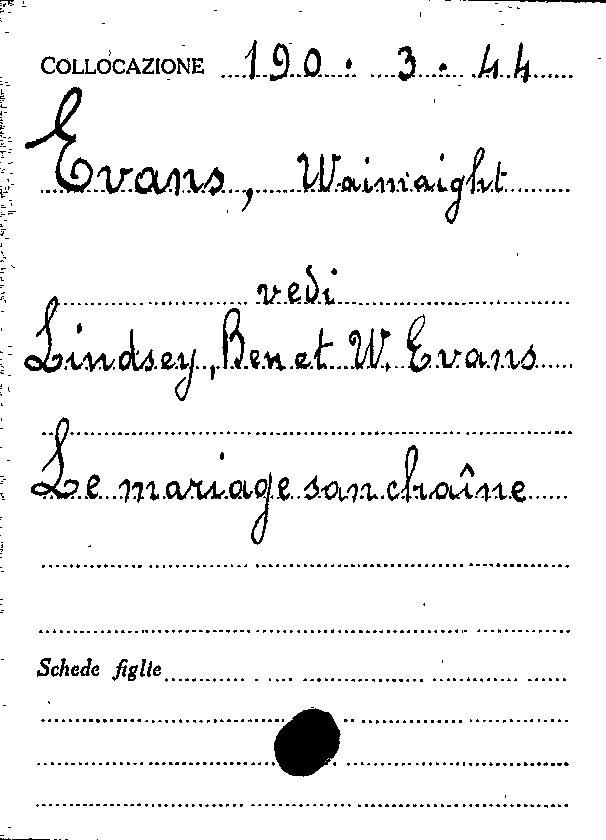 COLLOCAZIONE 190. 3. 44
Evans, Wainraight
vedi
Lindsey, Ben et W. Evans
Le mariage san chaîne
Schede figlie